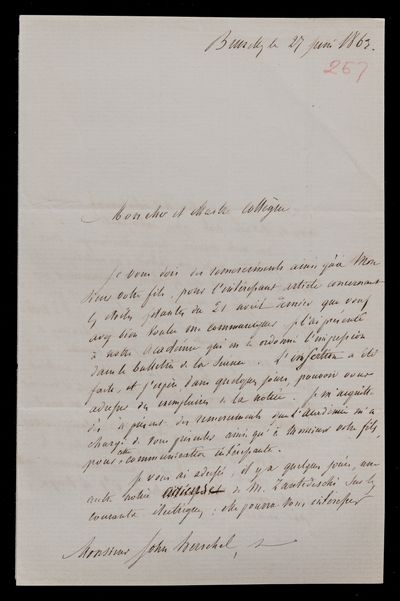 Bruxelles le 27 juin 1863.
267
Mon cher et illustre Collègue
Je vous dois des remerciments ainsi qu'à Mon
sieur votre fils, pour l'intéressant article concernant
les étoiles filantes du 21 avril dernier que vous
avez bien voulu me communiquer. je l'ai présenté
à notre Académie qui en a ordonné l'impression
dans le bulletin de la Séance. L'insertion a été
faite, et j'espère dans quelques jours, pouvoir vous
adresser des exemplaires de la notice. Je m'acquitte
dès à présent des remerciments que l'académie m'a
chargé de vous présenter ainsi qu'à Monsieur votre fils,
pour cette communication intéressante.
Je vous ai adressé, il y a quelques jours, une
autre notice de M. Zantedeschi sur les
courants électriques; elle pourra vous intéresser
Monsieur John Herschel,